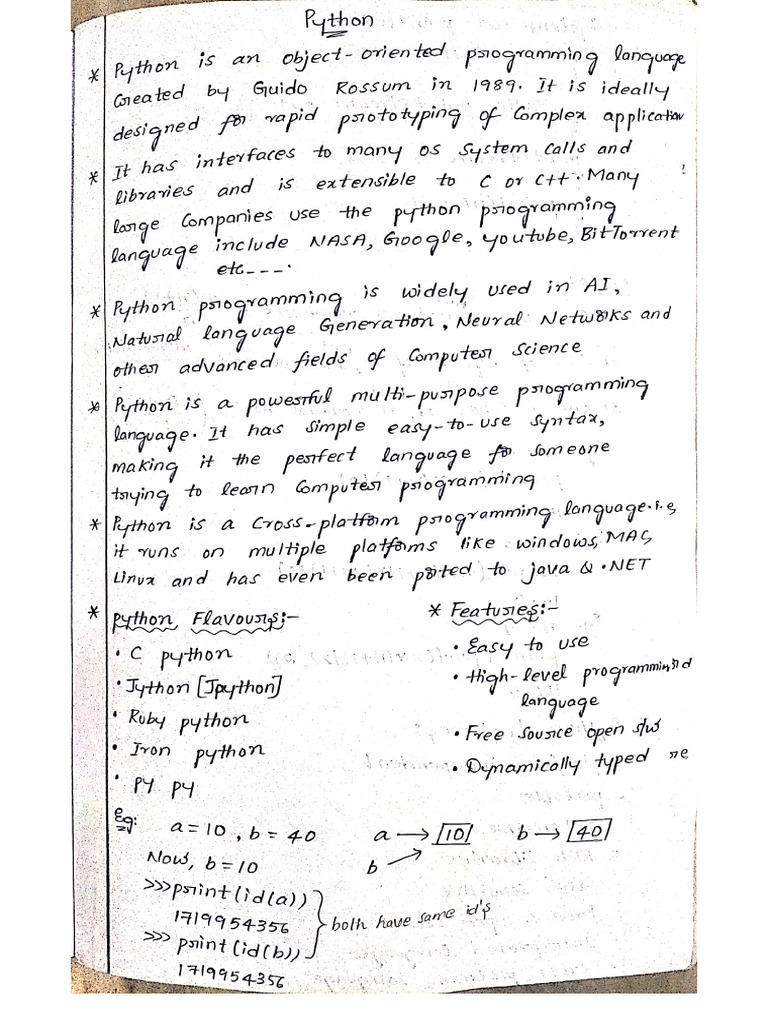 Python
* Python is an object-oriented programming language
Created by Guido Rossum in 1989. It is ideally
designed for rapid prototyping of Complex application
* It has interfaces to many os system calls and
libraries and is extensible to C or C++. Many
large Companies use the python programming
language include NASA, Google, youtube, BitTorrent
etc----.
* Python programming is widely used in AI,
Natural language Generation, Neural Networks and
other advanced fields of Computer Science
* Python is a powerful multi-purpose programming
language. It has simple easy-to-use syntax,
making it the perfect language for someone
trying to learn Computer programming
* Python is a Cross-platform programming language. i.e,
it runs on multiple platforms like windows, MAC,
Linux and has even been ported to java & .NET
* python Flavours:-
• C python
• Jython [Jpython]
• Ruby python
• Iron python
• py py
* Features:-
• Easy to use
• High-level programming
language
• Free source open s/w
• Dynamically typed
Eg: a=10, b=40
a → 10 b → 40
Now, b=10
b
>>>print(id(a))
1719954356
>>> print(id(b))
1719954356
both have same id's